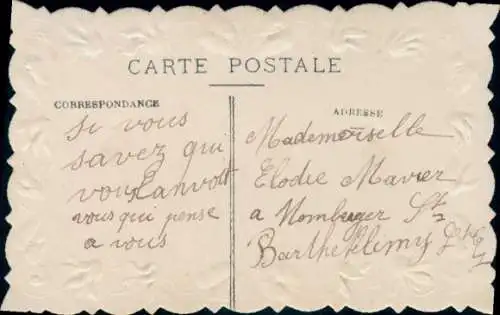 CARTE POSTALE
CORRESPONDANCE
si vous
savez qui
vous
vous qui pense
a vous
ADRESSE
Mademoiselle
Elodie Mavier
a Momburger St
Barthelklimy